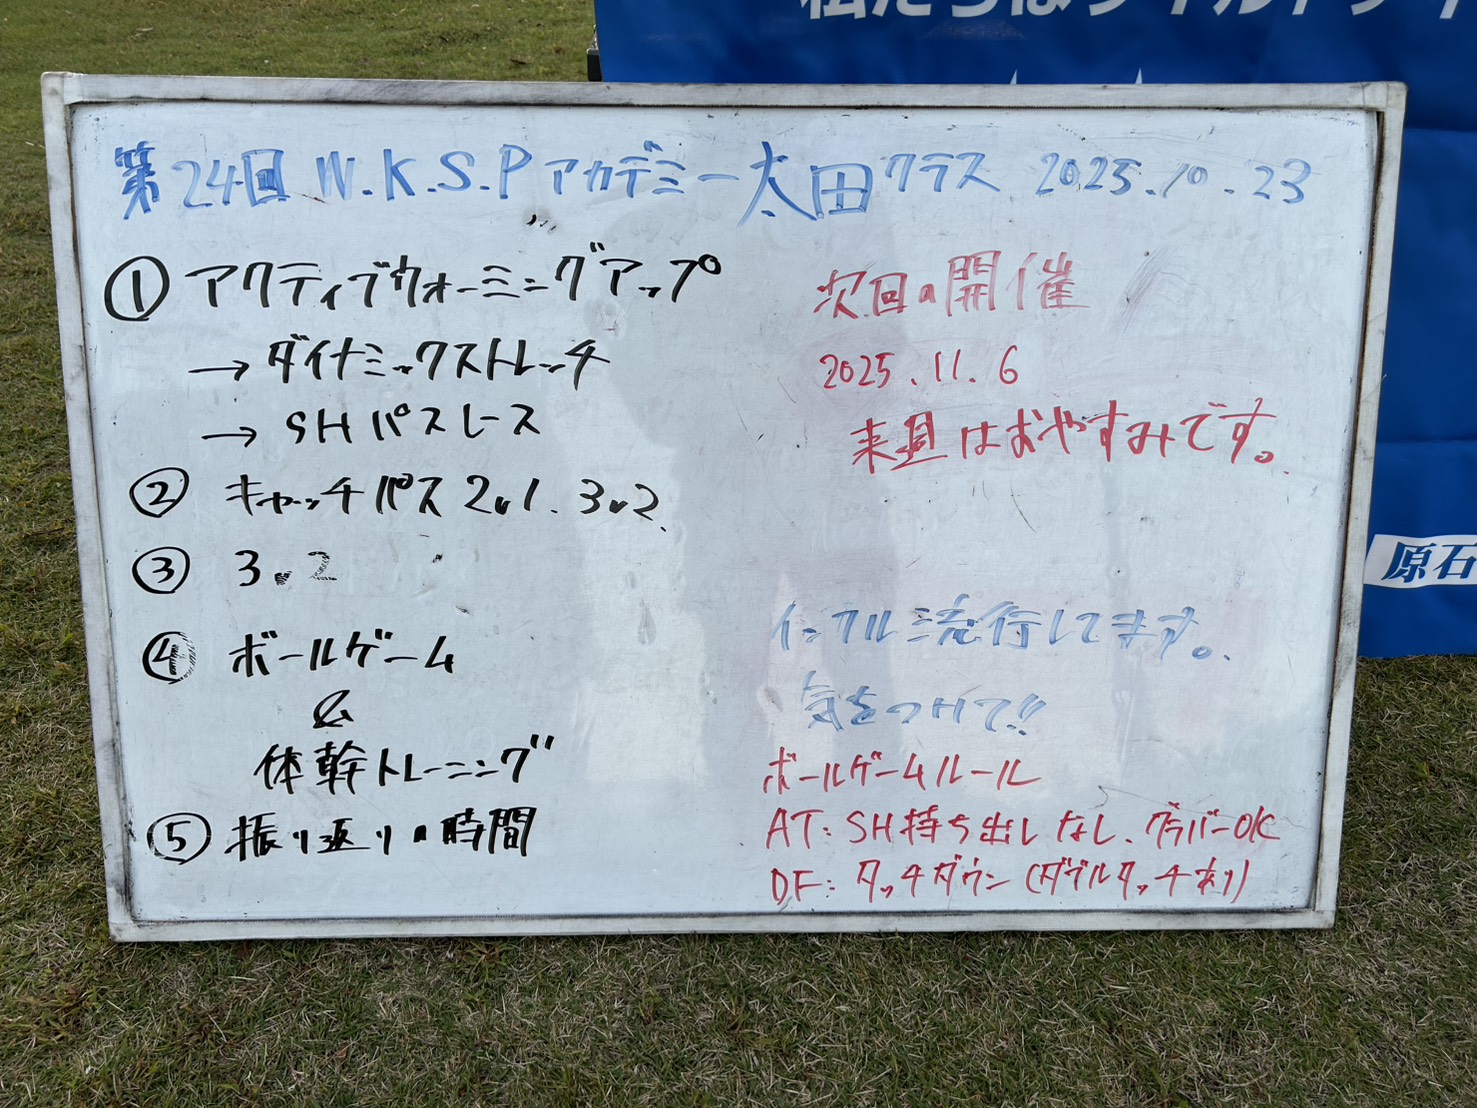 私たちは
第24回 W.K.S.Pアカデミー太田クラス 2025.10.23
① アクティブウォーミングアップ
→ ダイナミックストレッチ
→ SHパスレース
② キャッチパス 2v1. 3v2.
③ 3v2
④ ボールゲーム
&
体幹トレーニング
⑤ 振り返りの時間
次回の開催
2025.11.6
来週はおやすみです。
原石
インフル流行してます。
気をつけて!!
ボールゲームルール
AT: SH持ち出しなし、グラバーOK
DF: タッチダウン(ダブルタッチ有り)